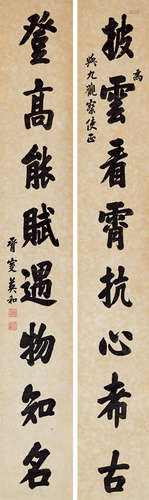 為
披雲看霄抗心希古
與九觀察使正
登高能賦遇物知名
英和